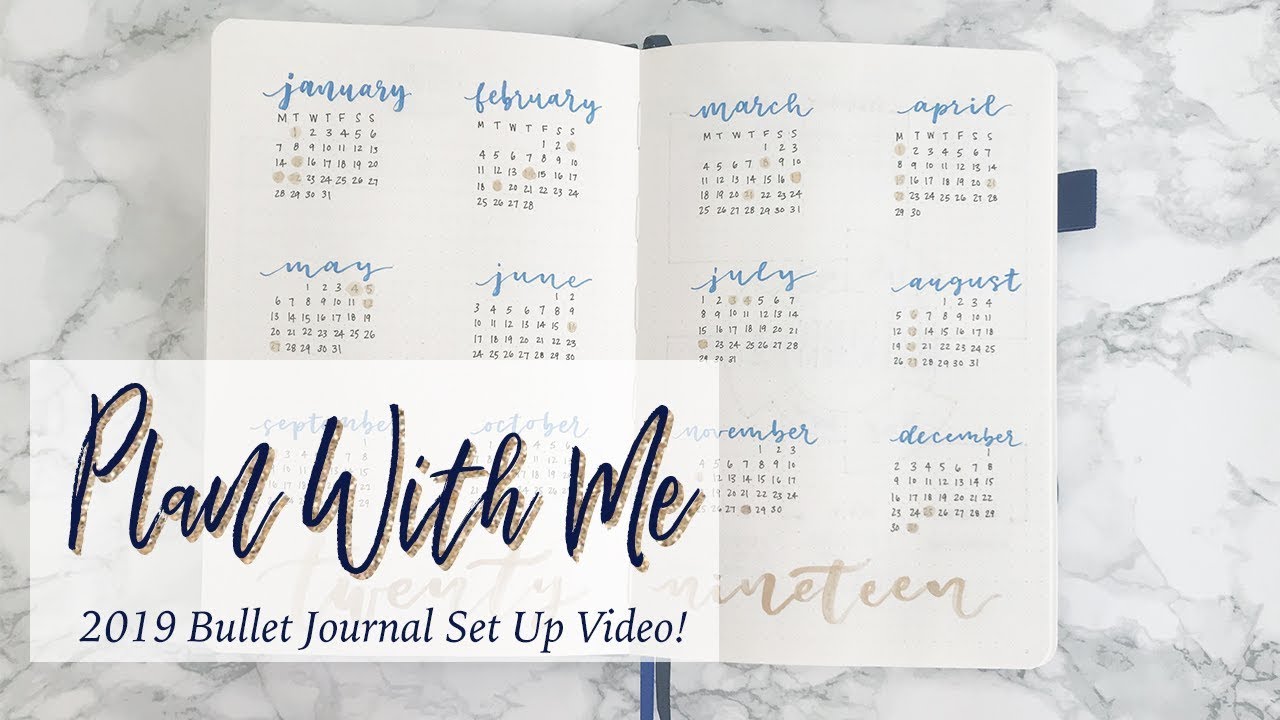 january
M T W T F S S
1 2 3 4 5 6
7 8 9 10 11 12 13
14 15 16 17 18 19 20
21 22 23 24 25 26 27
28 29 30 31
february
M T W T F S S
1 2 3
4 5 6 7 8 9 10
11 12 13 14 15 16 17
18 19 20 21 22 23 24
25 26 27 28
march
M T W T F S S
1 2 3
4 5 6 7 8 9 10
11 12 13 14 15 16 17
18 19 20 21 22 23 24
25 26 27 28 29 30 31
april
M T W T F S S
1 2 3 4 5 6 7
8 9 10 11 12 13 14
15 16 17 18 19 20 21
22 23 24 25 26 27 28
29 30
may
1 2 3 4 5
6 7 8 9 10 11 12
13 14 15 16 17 18 19
20 21 22 23 24 25 26
27 28 29 30 31
june
1 2
3 4 5 6 7 8 9
10 11 12 13 14 15 16
17 18 19 20 21 22 23
july
1 2 3 4 5 6 7
8 9 10 11 12 13 14
15 16 17 18 19 20 21
22 23 24 25 26 27 28
29 30 31
august
1 2 3 4
5 6 7 8 9 10 11
12 13 14 15 16 17 18
19 20 21 22 23 24 25
26 27 28 29 30 31
september
october
november
1 2 3
4 5 6 7 8 9 10
11 12 13 14 15 16 17
18 19 20 21 22 23 24
25 26 27 28 29 30
december
1
2 3 4 5 6 7 8
9 10 11 12 13 14 15
16 17 18 19 20 21 22
23 24 25 26 27 28 29
30 31
Plan With Me
twenty nineteen
2019 Bullet Journal Set Up Video!